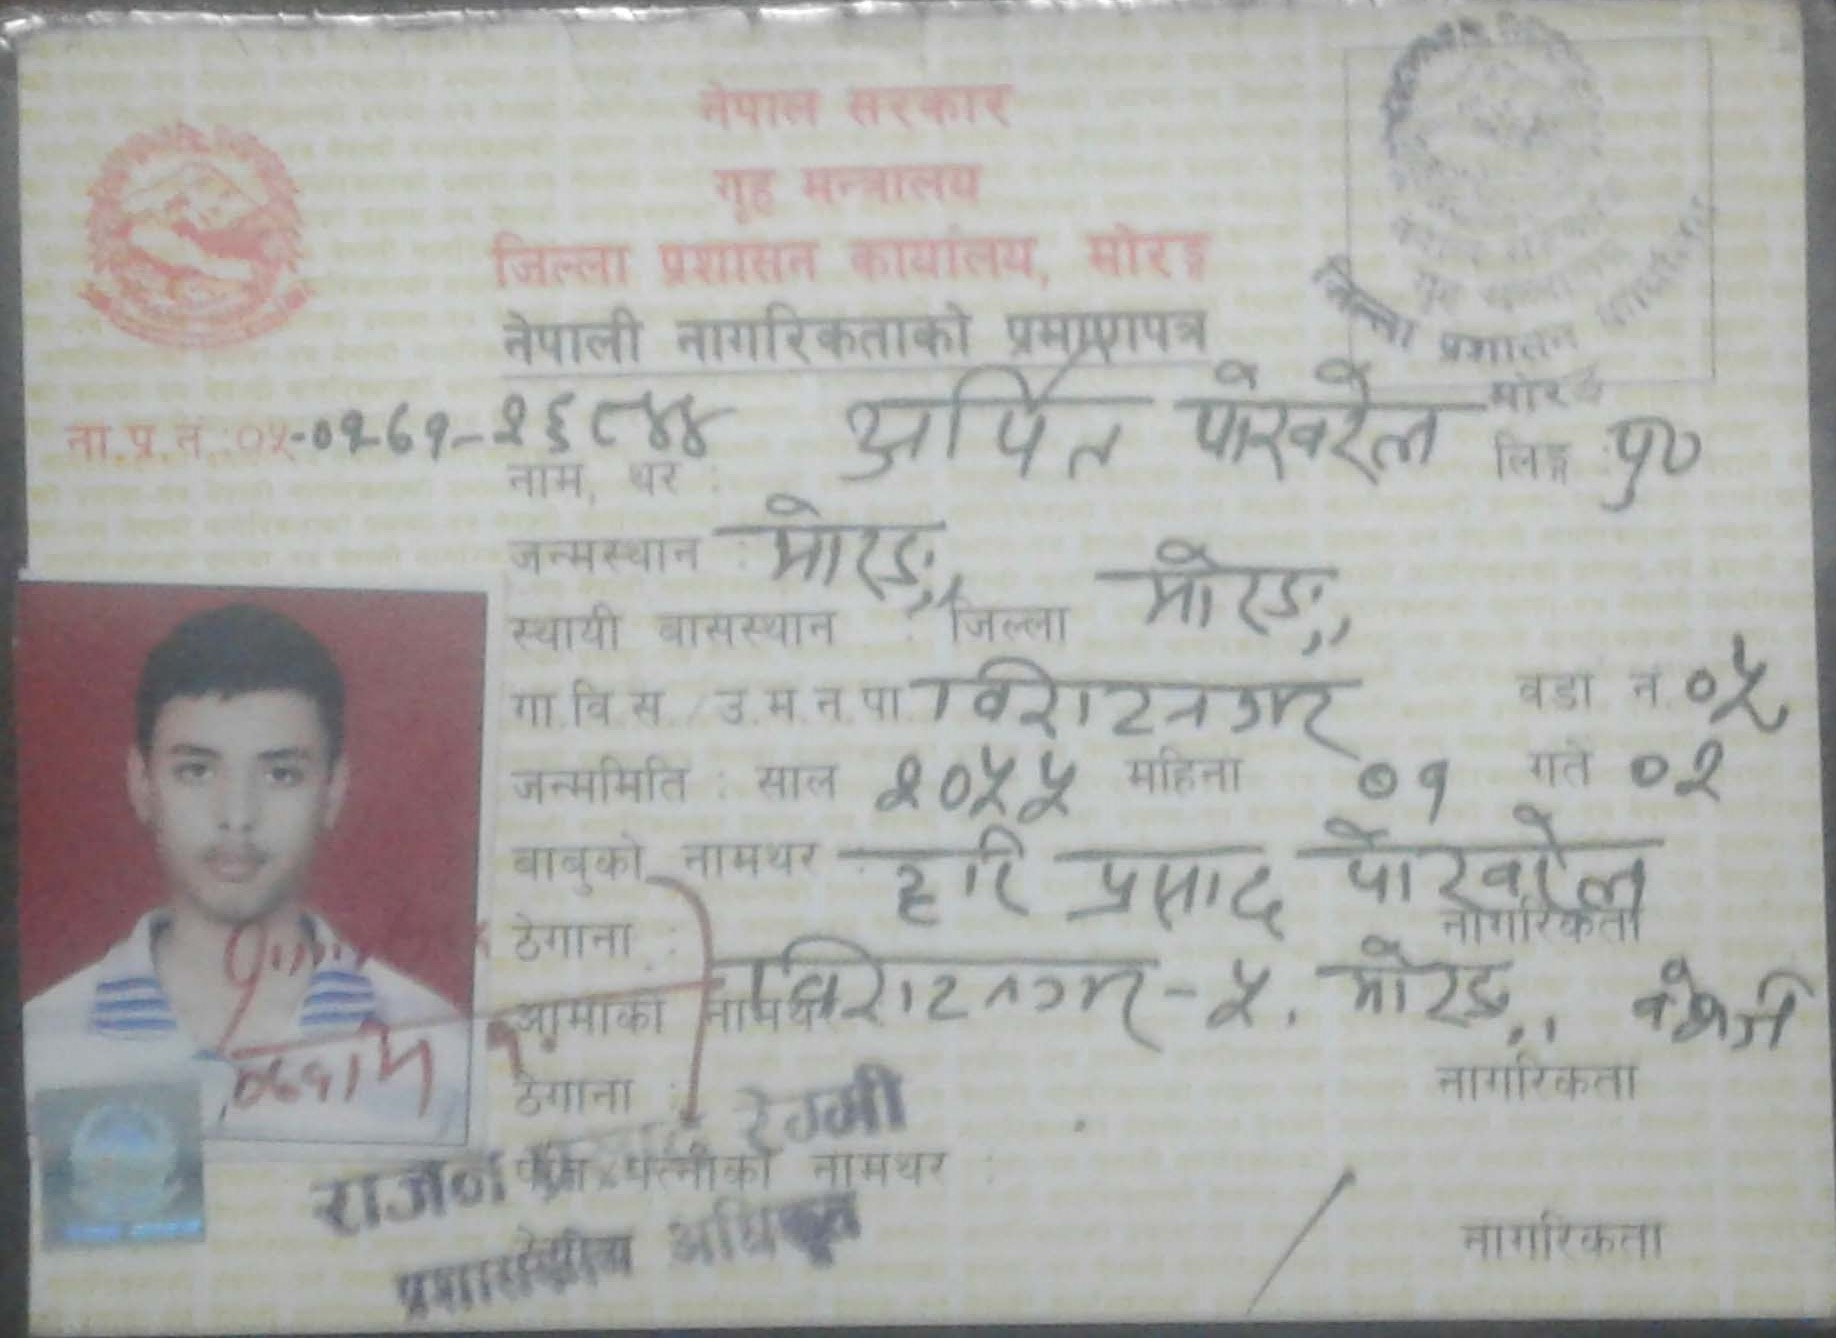 नेपाल सरकार
गृह मन्त्रालय
जिल्ला प्रशासन कार्यालय, मोरङ्ग
नेपाली नागरिकताको प्रमाणपत्र
जिल्ला प्रशासन कार्यालय
मोरङ
ना.प्र.नं.:०५-०१-७१-
नाम, थर : अर्पित पोखरेल लिङ्ग : पु०
जन्मस्थान : मोरङ
स्थायी बासस्थान : जिल्ला मोरङ
गा.वि.स./उ.म.न.पा. विराटनगर वडा नं. ०५
जन्ममिति : साल २०५५ महिना ०१ गते ०२
बाबुको नामथर : हरि प्रसाद पोखरेल
ठेगाना : नागरिकता
विराटनगर-५, मोरङ वंशज
आमाको नामथर
ठेगाना : नागरिकता
राजन प्रसाद रेग्मी
पति/पत्नीको नामथर :
प्रशासकीय अधिकृत
नागरिकता